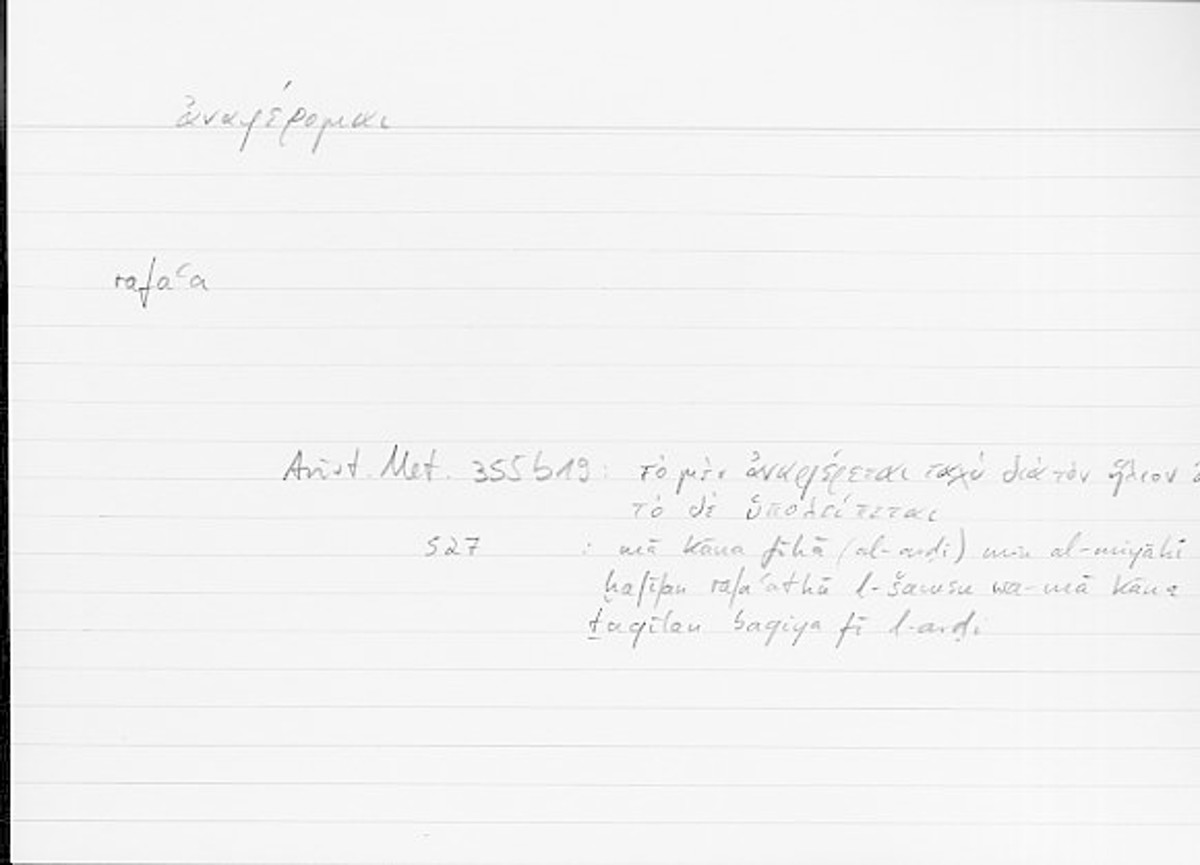 ἀναφέρομαι
rafaʿa
Arist. Met. 355b19: τὸ μὲν ἀναφέρεται ταχὺ διὰ τὸν ἥλιον
τὸ δὲ ὑπολείπεται
527 : mā kāna fīhā (al-arḍi) min al-miyāhi
ḫafīfan rafaʿathū l-šamsu wa-mā kāna
ṯaqīlan baqiya fī l-arḍi